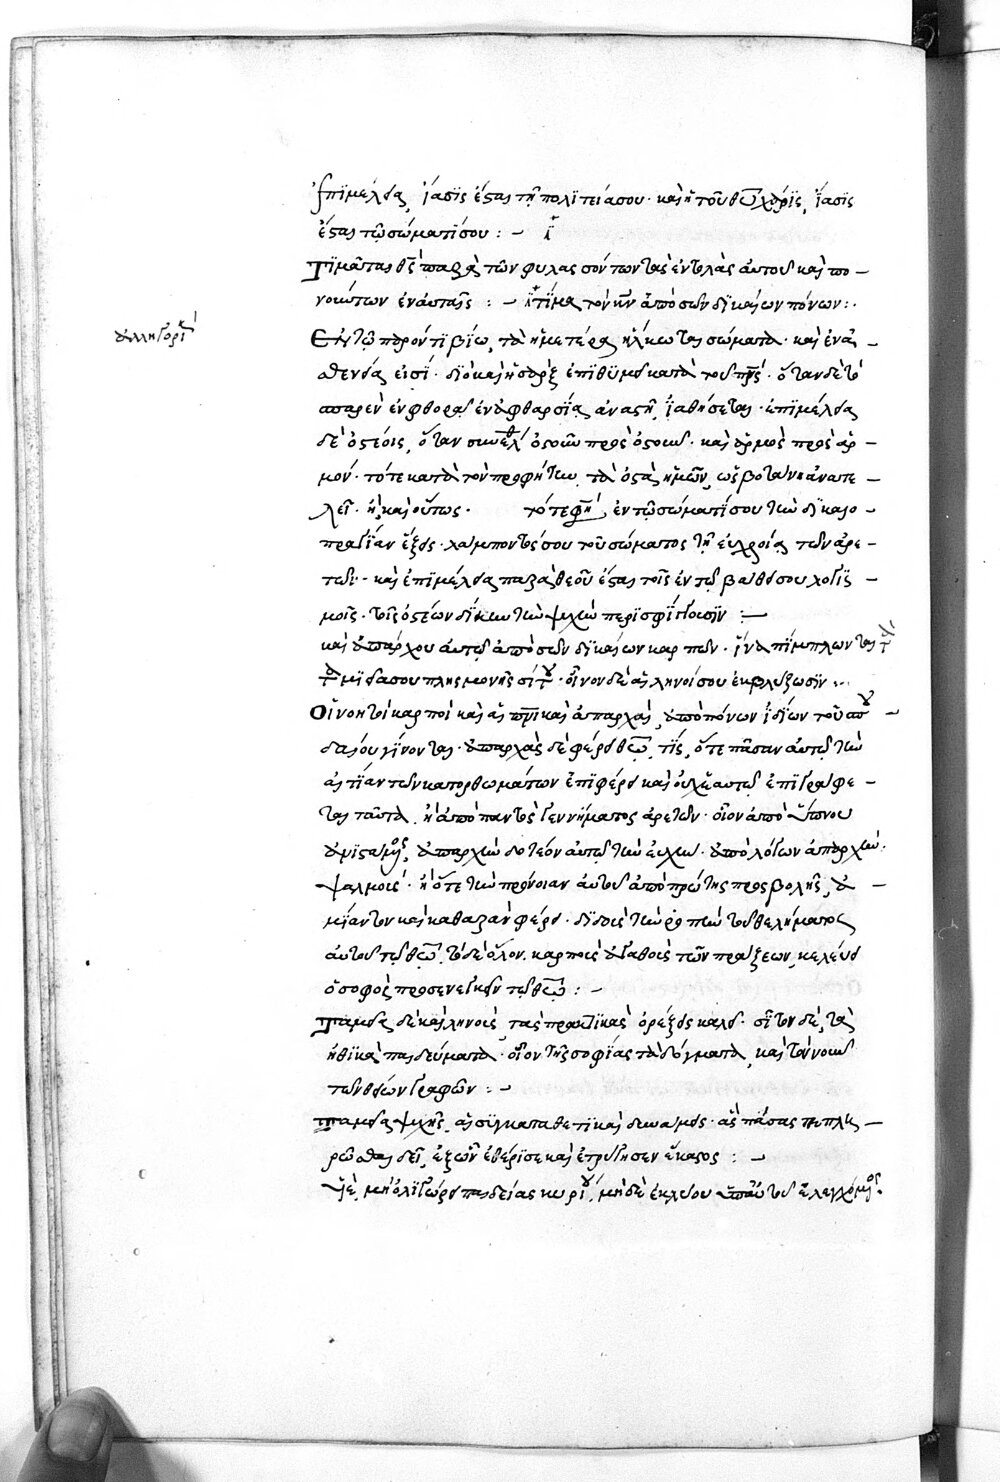 ἐπιμέλεια, ἴασις ἔσται τῇ πολιτεία σου· καὶ ἡ τοῦ θῦ χάρις, ἴασις
ἔσται τῷ σώματί σου : –
Τιμᾶται θς παρὰ τῶν φυλασσόντων τὰς ἐντολὰς αὐτοῦ καὶ πο –
νούντων ἐν αὐταῖς : – τίμα τὸν κν ἀπὸ σῶν δικαίων πόνων :·
ἀλληγορί
Ἐν τῷ παρόντι βίῳ, τὰ ἡμέτερα ἥλκωται σώματα· καὶ ἐν ἀ –
σθενεία εἰσί· διὸ καὶ ἡ σὰρξ ἐπιθυμεῖ κατὰ τοῦ πνς· ὅταν δὲ τὸ
σπαρὲν ἐν φθορᾷ ἐν ἀφθαρσίᾳ ἀναστῇ, ἰαθήσεται· ἐπιμέλεια
δὲ ὀστέοις, ὅταν συνέλθ ὀστοῦν πρὸς ὀστοῦν· καὶ ἁρμὸς πρὸς ἁρ –
μόν· τότε κατὰ τὸν προφήτην, τὰ ὀστᾶ ἡμῶν, ὡς βοτάνη ἀνατε –
λεῖ· ἢ καὶ οὕτως· τότε φησὶ ἐν τῷ σώματί σου τὴν δικαιο –
πραγίαν ἕξεις· λάμποντός σου τοῦ σώματος τῇ εὐχροίᾳ τῶν ἀρε –
τῶν· καὶ ἐπιμέλεια παρὰ θεοῦ ἔσται τοῖς ἐν τῷ βάθει σου λογισ –
μοῖς· τοῖς ὀστέων δίκην τὴν ψυχὴν περισφίγγουσιν : —
καὶ ἀπάρχου αὐτῷ ἀπὸ σῶν δικαίων καρπῶν· ἵνα πίμπλωνται
τὰ ταμιεῖά σου πλησμονῆς σίτου· οἴνου δὲ αἱ ληνοί σου ἐκβλύζωσιν :·
Οἱ νοητοὶ καρποὶ καὶ αἱ πνικαὶ ἀπαρχαὶ, ἀπὸ πόνων ἰδίων τοῦ σπου –
δαίου γίνονται· ἀπαρχὰς δὲ φέρει θῷ τίς, ὅτε πᾶσαν αὐτῷ τὴν
αἰτίαν τῶν κατορθωμάτων ἐπιφέρει καὶ οὐχ ἑαυτῷ ἐπιγράφε –
ται ταῦτα. ἢ ἀπὸ παντὸς γεννήματος ἀρετῶν· οἷον ἀπὸ ὕπνου
ἀπαρχὴν δοτέον αὐτῷ τὴν εὐχήν· ἀπὸ λόγων ἀπαρχὴν
ψαλμούς· ἢ ὅτε τὴν πρόνοιαν αὐτοῦ ἀπὸ πρώτης προσβολῆς, ἀ –
μίαντον καὶ καθαρὰν φέρει· δὶς τὴν ῥοπὴν τοῦ θελήματος
αὐτοῦ τῷ θῷ, τὸ δὲ ὅλον. καρποὺς ἀγαθοὺς τῶν πράξεων, κελεύει
ὁ σοφὸς προσενεγκεῖν τῷ θῷ : –
Ταμεῖα δὲ καὶ ληνοὺς τὰς πρακτικὰς ὀρέξεις καλεῖ· σῖτον δὲ, τὰ
ἠθικὰ παιδεύματα· οἶνον τῆς σοφίας τὰ δόγματα, καὶ τὸν νοῦν
τῶν θείων γραφῶν : –
Ταμεῖα ψυχῆς, αἱ συγκαταθετικαὶ δυνάμεις· ἃς πάσας πεπλη –
ρῶσθαι δεῖ, ἐξ ὧν ἐθέρισε καὶ ἐτρύγησεν ἕκαστος : –
Υἱὲ, μὴ ὀλιγώρει παιδείας κυρίου, μηδὲ ἐκλύου ὑπ αὐτοῦ ἐλεγχόμενος·